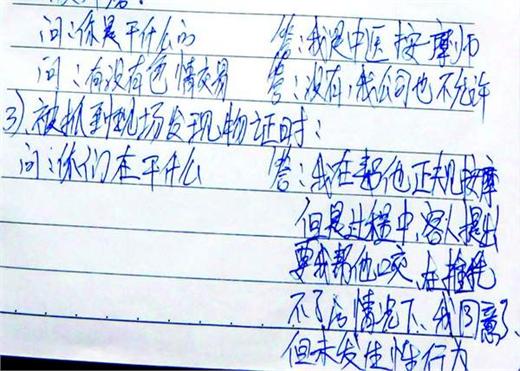 问：你是干什么的 答：我是中医按摩师
问：有没有色情交易 答：没有，我公司也不允许
3）、被抓到现场发现物证时：
问：你们在干什么 答：我在帮他正规按摩
但是过程中，客人提出
要我帮他咬，在推托
不了的情况下、我同意了、
但未发生性行为